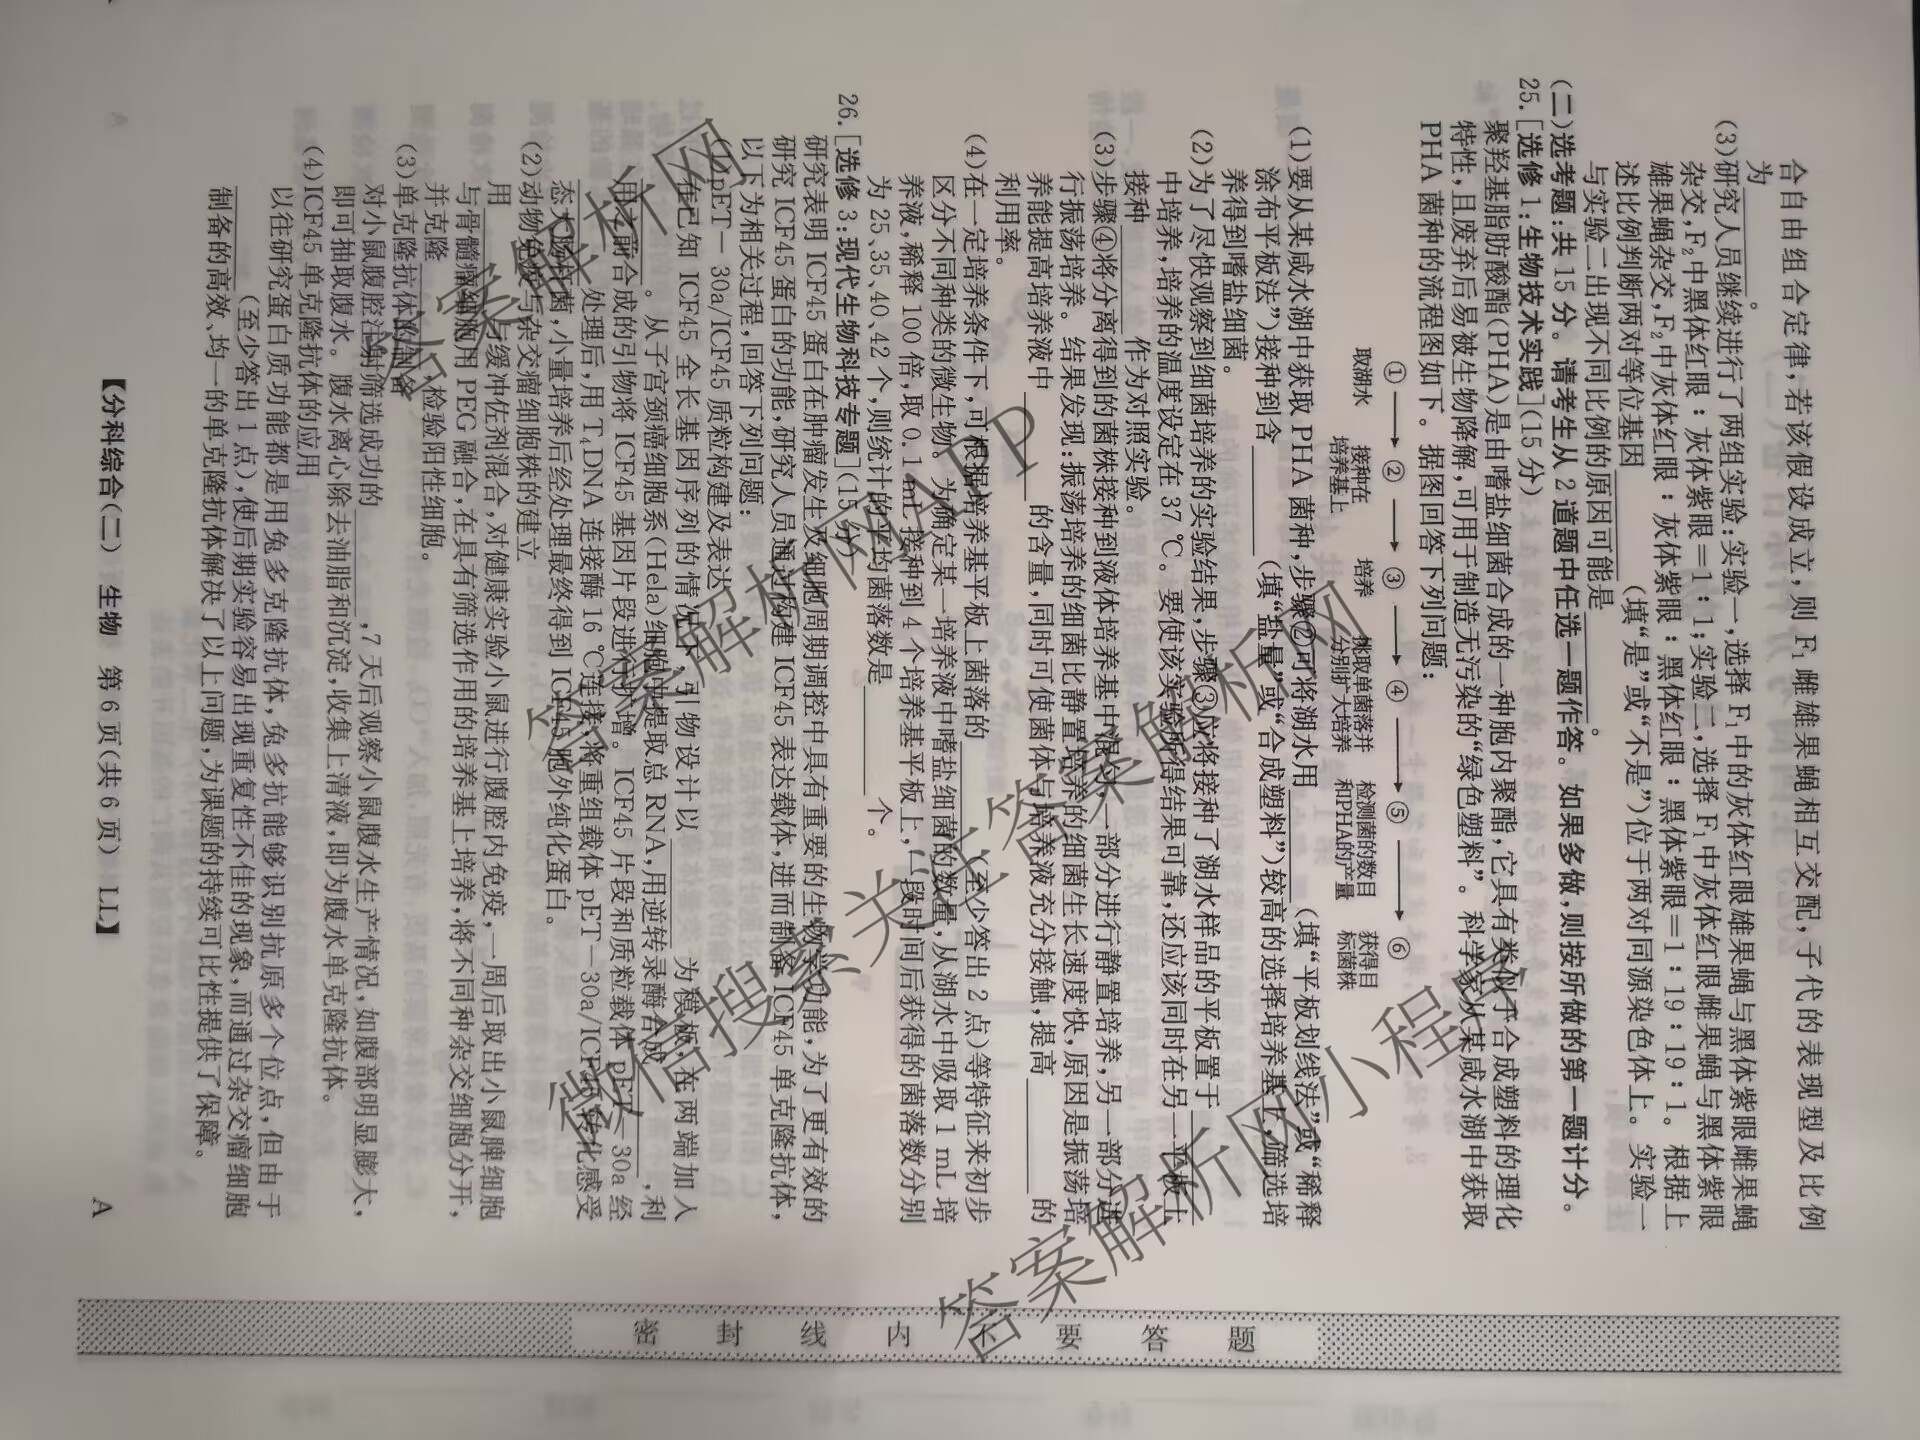 合自由组合定律,若该假设成立,则 F₁ 雌雄果蝇相互交配,子代的表现型及比例
为________。
(3)研究人员继续进行了两组实验:实验一,选择 F₁ 中的灰体红眼雄果蝇与黑体紫眼雌果蝇
杂交,F₂ 中黑体红眼:灰体紫眼=1:1;实验二,选择 F₁ 中灰体红眼雌果蝇与黑体紫眼
雄果蝇杂交,F₂ 中灰体红眼:灰体紫眼:黑体红眼:黑体紫眼=1:19:19:1。根据上
述比例判断两对等位基因________(填“是”或“不是”)位于两对同源染色体上。实验一
与实验二出现不同比例的原因可能是________。
(二)选考题:共 15 分。请考生从 2 道题中任选一题作答。如果多做,则按所做的第一题计分。
25.[选修 1:生物技术实践](15 分)
聚羟基脂肪酸酯(PHA)是由嗜盐细菌合成的一种胞内聚酯,它具有类似于合成塑料的理化
特性,且废弃后易被生物降解,可用于制造无污染的“绿色塑料”。科学家从某咸水湖中获取
PHA 菌种的流程图如下。据图回答下列问题:
①→②→③→④→⑤→⑥
取湖水 接种在培养基上 培养 挑取单菌落并分别扩大培养 检测菌的数目和PHA的产量 获得目标菌株
(1)要从某咸水湖中获取 PHA 菌种,步骤②可将湖水用________(填“平板划线法”或“稀释
涂布平板法”)接种到含________(填“盐量”或“合成塑料”)较高的选择培养基上,筛选培
养得到嗜盐细菌。
(2)为了尽快观察到细菌培养的实验结果,步骤③应将接种了湖水样品的平板置于________
中培养,培养的温度设定在 37 ℃。要使该实验所得结果可靠,还应该同时在另一平板上
接种________作为对照实验。
(3)步骤④将分离得到的菌株接种到液体培养基中混匀,一部分进行静置培养,另一部分进
行振荡培养。结果发现:振荡培养的细菌比静置培养的细菌生长速度快,原因是振荡培
养能提高培养液中________的含量,同时可使菌体与培养液充分接触,提高________的
利用率。
(4)在一定培养条件下,可根据培养基平板上菌落的________(至少答出 2 点)等特征来初步
区分不同种类的微生物。为确定某一培养液中嗜盐细菌的数量,从湖水中吸取 1 mL 培
养液,稀释 100 倍,取 0.1 mL 接种到 4 个培养基平板上,一段时间后获得的菌落数分别
为 25、35、40、42 个,则统计的平均菌落数是________个。
26.[选修 3:现代生物科技专题](15 分)
研究表明 ICF45 蛋白在肿瘤发生及细胞周期调控中具有重要的生物学功能,为了更有效的
研究 ICF45 蛋白的功能,研究人员通过构建 ICF45 表达载体,进而制备 ICF45 单克隆抗体,
以下为相关过程,回答下列问题:
(1)pET-30a/ICF45 质粒构建及表达
在已知 ICF45 全长基因序列的情况下,引物设计以________为模板,在两端加入
________。从子宫颈癌细胞系(Hela)细胞中提取总 RNA,用逆转录酶合成________,利
用之前合成的引物将 ICF45 基因片段进行扩增。ICF45 片段和质粒载体 pET-30a 经
________处理后,用 T₄ DNA 连接酶 16 ℃连接,将重组载体 pET-30a/ICF45 转化感受
态大肠杆菌,小量培养后经处理最终得到 ICF45 胞外纯化蛋白。
(2)动物免疫与杂交瘤细胞株的建立
用________与缓冲佐剂混合,对健康实验小鼠进行腹腔内免疫,一周后取出小鼠脾细胞
与骨髓瘤细胞用 PEG 融合,在具有筛选作用的培养基上培养,将不同种杂交细胞分开,
并克隆________检验阳性细胞。
(3)单克隆抗体的制备
对小鼠腹腔注射筛选成功的________,7 天后观察小鼠腹水生产情况,如腹部明显膨大,
即可抽取腹水。腹水离心除去油脂和沉淀,收集上清液,即为腹水单克隆抗体。
(4)ICF45 单克隆抗体的应用
以往研究蛋白质功能都是用兔多克隆抗体,兔多抗能够识别抗原多个位点,但由于
________(至少答出 1 点),使后期实验容易出现重复性不佳的现象,而通过杂交瘤细胞
制备的高效、均一的单克隆抗体解决了以上问题,为课题的持续可比性提供了保障。
【分科综合(二) 生物 第 6 页(共 6 页) LL】 A
密 封 线 内 不 要 答 题
答案解析网
答案解析网APP
微信搜索关注答案解析网
答案解析网小程序